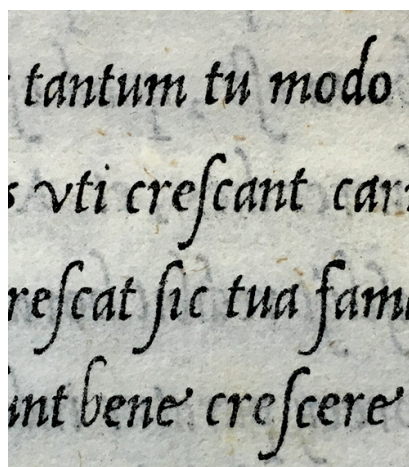 tantum tu modo
vti creſcant
reſcat ſic tua
bene creſcere